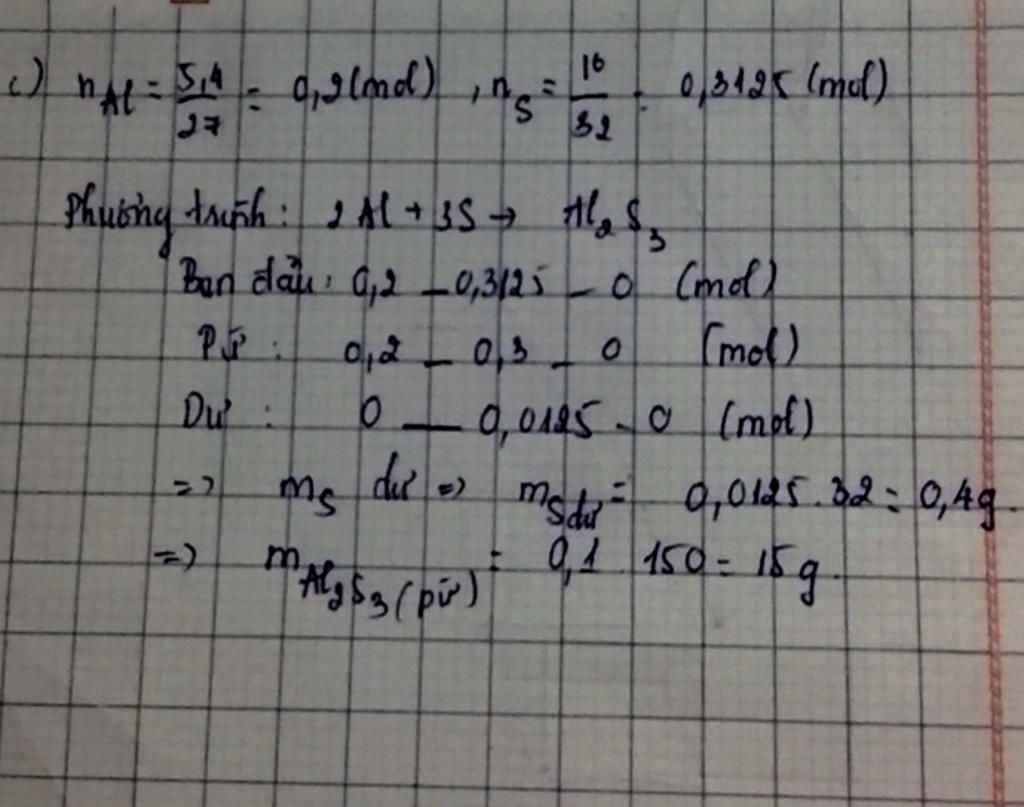 c) nAl = 5,4/27 = 0,2 (mol), nS = 10/32 = 0,3125 (mol)
Phương trình: 2Al + 3S → Al2S3
Ban đầu: 0,2 _ 0,3125 _ 0 (mol)
Pứ: 0,2 _ 0,3 _ 0 (mol)
Dư: 0 — 0,0125 - 0 (mol)
=> mS dư => mS dư = 0,0125.32 = 0,4g.
=> mAl2S3 (pứ) = 0,1 150 = 15g.